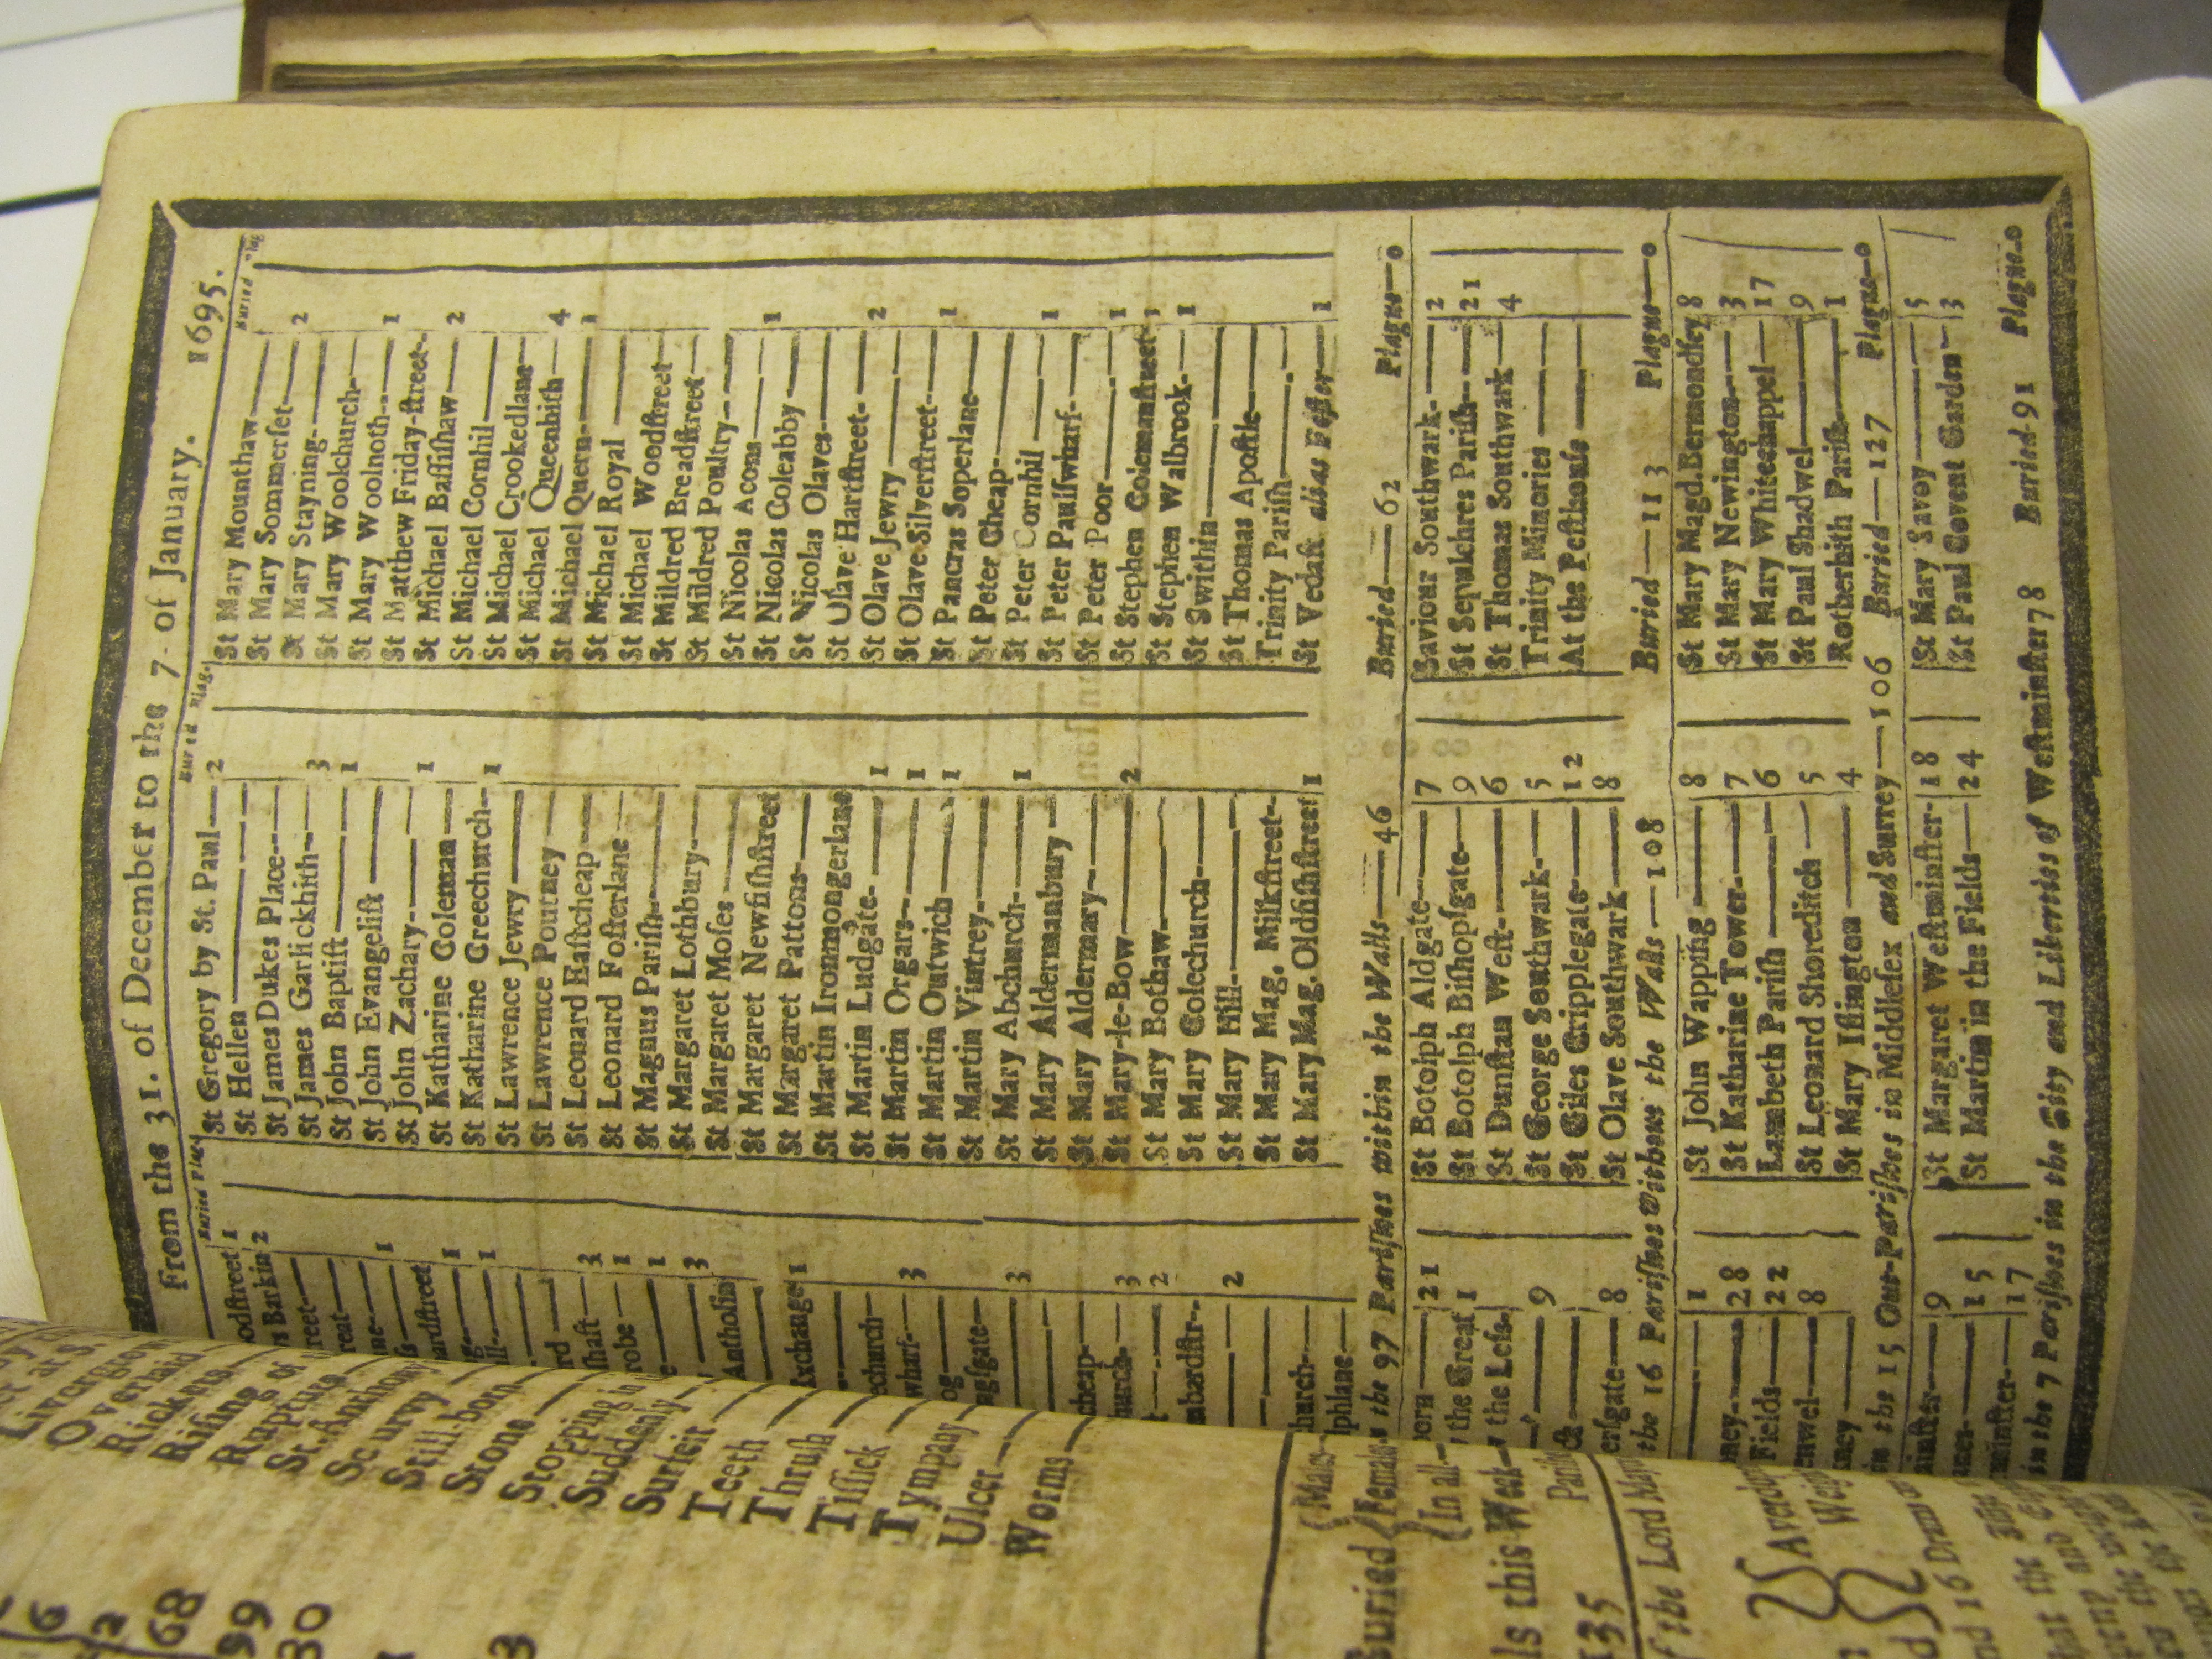 From the 31. of December to the 7. of January. 1695.
Buried Plag.
Buried Plag.
Buried Plag.
odſtreet 1
s Barkin 2
reet
reat
ne 1
ſs
ardſtreet 1
1
rd
ſhaft 3
robe 1
e 1
3
Antholin
Exchange 1
echurch
wharf 3
og
ngſgate
3
cheap
hurch 3
t 2
mbardſtr
2
hurch
lphlane
St Gregory by St. Paul 2
St Hellen
St James Dukes Place
St James Garlickhith 3
St John Baptiſt 1
St John Evangeliſt
St John Zachary 1
St Katharine Coleman
St Katharine Creechurch 1
St Lawrence Jewry
St Lawrence Poutney
St Leonard Eaſtcheap
St Leonard Foſterlane
St Magnus Pariſh
St Margaret Lothbury
St Margaret Moſes
St Margaret Newfiſhſtreet
St Margaret Pattons
St Martin Ironmongerlane
St Martin Ludgate 1
St Martin Orgars 1
St Martin Outwich 1
St Martin Vintrey
St Mary Abchurch 1
St Mary Aldermanbury
St Mary Aldermary
St Mary-le-Bow 2
St Mary Bothaw
St Mary Colechurch
St Mary Hill
St Mary Mag. Milkſtreet
St Mary Mag. Oldfiſhſtreet 1
St Mary Mounthaw
St Mary Sommerſet 2
St Mary Stayning
St Mary Woolchurch
St Mary Woolnoth 1
St Matthew Friday-ſtreet
St Michael Baſſiſhaw 2
St Michael Cornhil
St Michael Crookedlane
St Michael Queenhith 4
St Michael Quern 1
St Michael Royal
St Michael Woodſtreet
St Mildred Breadſtreet
St Mildred Poultry
St Nicolas Acons
St Nicolas Coleabby 1
St Nicolas Olaves
St Olave Hartſtreet
St Olave Jewry 2
St Olave Silverſtreet
St Pancras Soperlane 1
St Peter Cheap
St Peter Cornhil
St Peter Paulſwharf 1
St Peter Poor
St Stephen Colemanſtreet 1
St Stephen Walbrook 1
St Swithin 1
St Thomas Apoſtle
Trinity Pariſh
St Vedaſt alias Foſter 1
the 97 Pariſhes within the Walls—46 Buried—62 Plague—0
21
the Great 1
the Leſs
9
erſgate 8
St Botolph Aldgate 7
St Botolph Biſhopſgate 9
St Dunſtan Weſt 6
St George Southwark 5
St Giles Cripplegate 12
St Olave Southwark 8
Saviour Southwark 2
St Sepulchres Pariſh 21
St Thomas Southwark 4
Trinity Minories
At the Peſthouſe
the 16 Pariſhes without the Walls—108 Buried—113 Plague—0
1
ney 28
Fields 22
enwel 8
ney
St John Wapping 8
St Katharine Tower 7
Lambeth Pariſh 6
St Leonard Shoreditch 5
St Mary Iſlington 4
St Mary Magd. Bermondſey 8
St Mary Newington 3
St Mary Whitechappel 17
St Paul Shadwel 9
Rotherhith Pariſh 1
in the 15 Out-Pariſhes in Middleſex and Surrey—106 Buried—127 Plague—0
inſter 9
nes 15
minſter 17
St Margaret Weſtminſter 18
St Martin in the Fields 24
St Mary Savoy 5
St Paul Covent Garden 3
in the 7 Pariſhes in the City and Liberties of Weſtminſter 78 Buried 91 Plague 0
Livergrown
Overlaid
Rickets
Riſing of
Rupture
St. Anthony
Scurvy
Still-born
Stone
Stopping in
Suddenly
Surfeit
Teeth
Thruſh
Tiſſick
Tympany
Ulcer
Worms
6
2
68
99
30
3
Buried
Males
Females
In all
ls this Week
135
f the Lord Mayor
Averdupois
nd 16 Dram